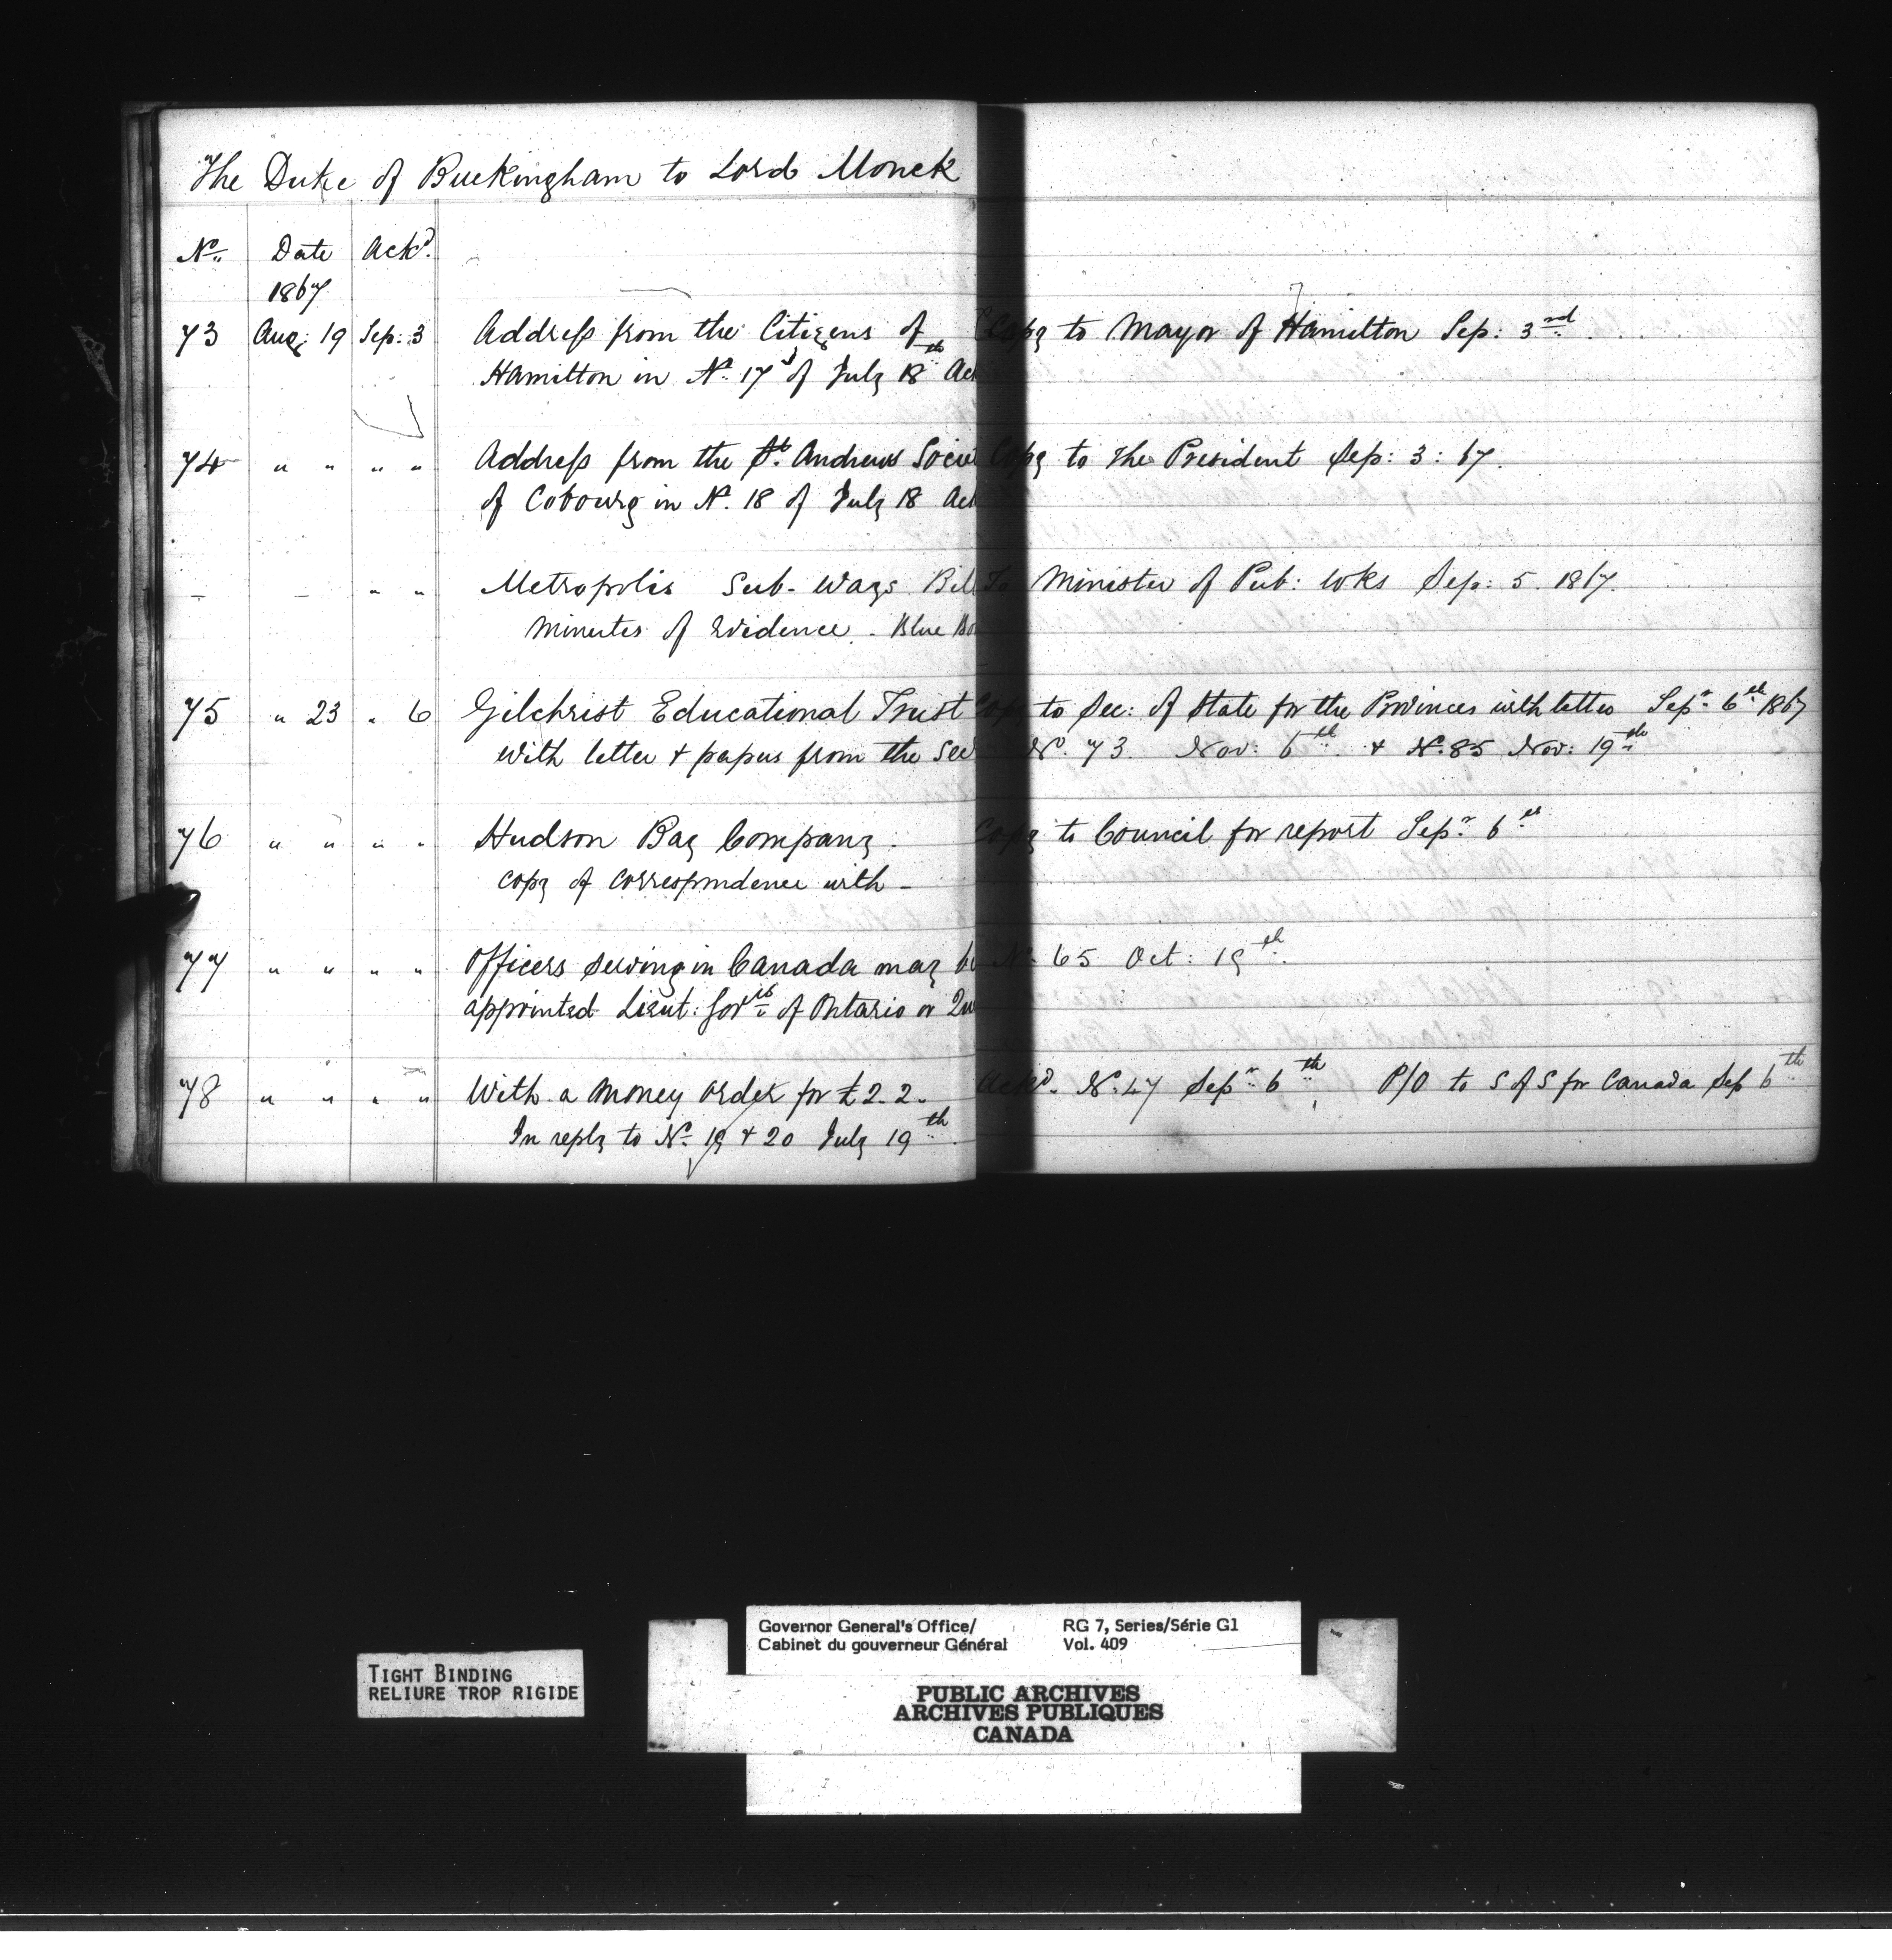 The Duke of Buckingham to Lord Monck
No. Date Ackd.
1867
73 Aug: 19 Sep: 3 Address from the Citizens of Copy to Mayor of Hamilton Sep: 3rd
Hamilton in No. 17 of July 18th Ack
74 " " " " Address from the St. Andrews Socie Copy to the President Sep: 3: 67.
of Cobourg in No. 18 of July 18 Ack
- - " " Metropolis Sub-Ways Bil To Minister of Pub: Wks Sep: 5. 1867.
Minutes of Evidence. - Blue Bo
75 " 23 " 6 Gilchrist Educational Trust Copy to Sec: of State for the Provinces with letter Sepr. 6th 1867
with letter & papers from the Sec No. 73. Nov: 6th & No. 85 Nov: 19th
76 " " " " Hudson Bay Company. Copy to Council for report Sepr. 6th
copy of correspondence with -
77 " " " " Officers serving in Canada may be No. 65 Oct: 19th
appointed Lieut: Govrs. of Ontario or Qu
78 " " " " With a money order for £2.2. Ackd. No. 47 Sepr. 6th P/O to S of S for Canada Sep 6th
In reply to No. 19 & 20 July 19th.
TIGHT BINDING
RELIURE TROP RIGIDE
Governor General's Office/ RG 7, Series/Série G1
Cabinet du gouverneur Général Vol. 409
PUBLIC ARCHIVES
ARCHIVES PUBLIQUES
CANADA